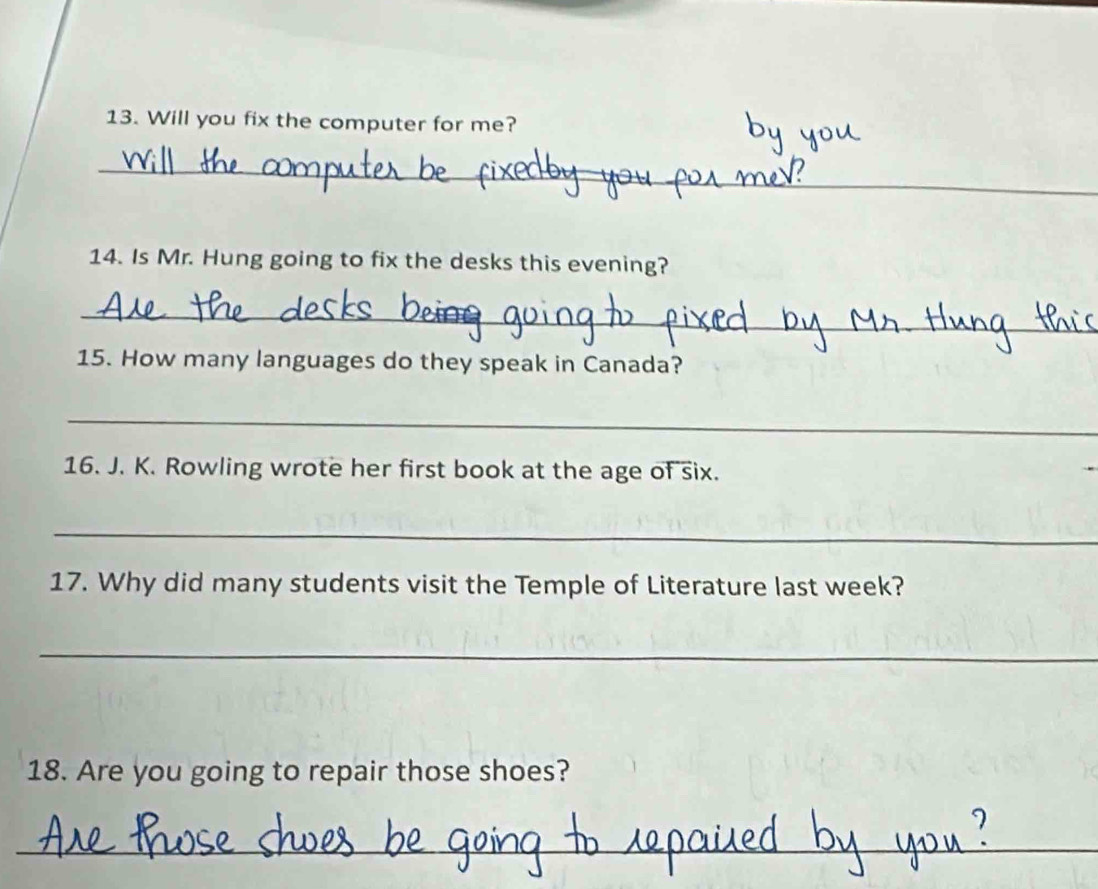 13. Will you fix the computer for me?
by you
Will the computer be fixed by you for me?
14. Is Mr. Hung going to fix the desks this evening?
Are the desks being going to fixed by Mr. Hung this
15. How many languages do they speak in Canada?
16. J. K. Rowling wrote her first book at the age of six.
17. Why did many students visit the Temple of Literature last week?
18. Are you going to repair those shoes?
Are those shoes be going to repaired by you?